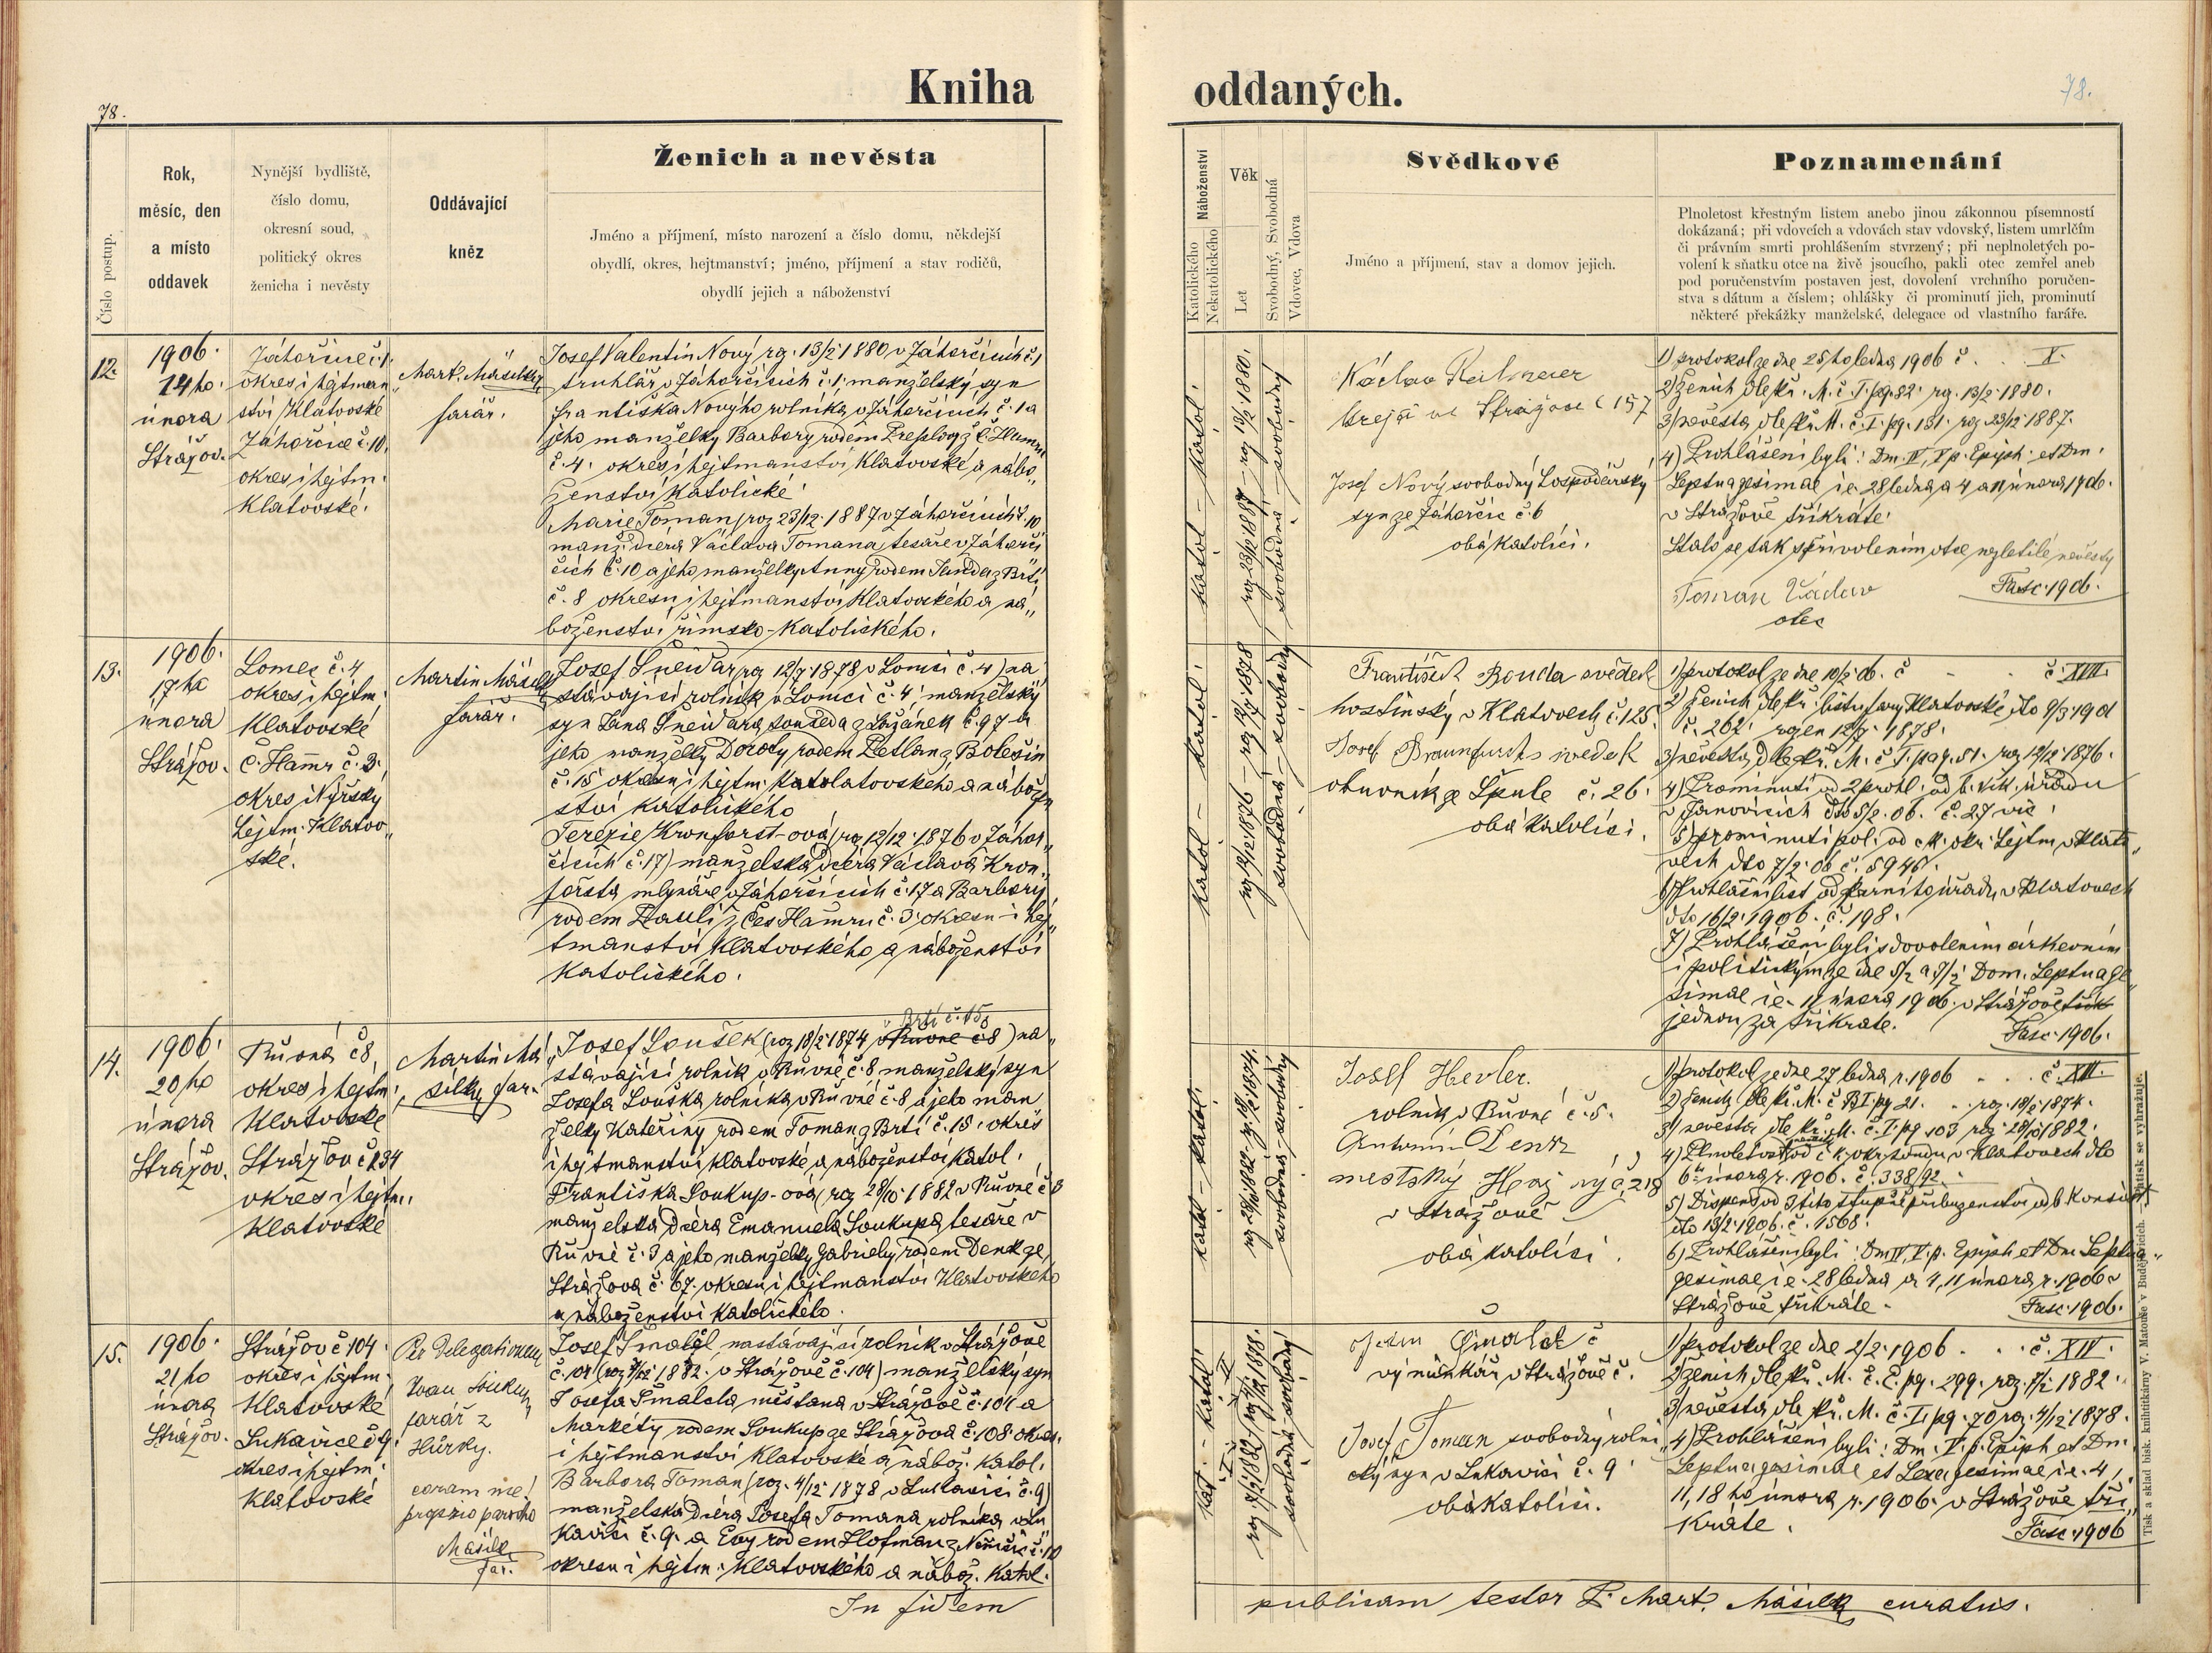 78.
Kniha
oddaných.
78.
Číslo postup.
Rok,
měsíc, den
a místo
oddavek
Nynější bydliště,
číslo domu,
okresní soud,
politický okres
ženicha i nevěsty
Oddávající
kněz
Ženich a nevěsta
Jméno a příjmení, místo narození a číslo domu, někdejší
obydlí, okres, hejtmanství; jméno, příjmení a stav rodičů,
obydlí jejich a náboženství
Náboženství
Katolického
Nekatolického
Věk
Let
Svobodný, Svobodná
Vdovec, Vdova
Svědkové
Jméno a příjmení, stav a domov jejich.
Poznamenání
Plnoletost křestným listem anebo jinou zákonnou písemností
dokázaná; při vdovcích a vdovách stav vdovský, listem umrlčím
či právním smrti prohlášením stvrzený; při neplnoletých po-
volení k sňatku otce na živě jsoucího, pakli otec zemřel aneb
pod poručenstvím postaven jest, dovolení vrchního poručen-
stva s dátum a číslem; ohlášky či prominutí jich, prominutí
některé překážky manželské, delegace od vlastního faráře.
12.
1906.
14ho
února
Strážov.
Záhorčice č. 1.
okres i hejtman
ství Klatovské
Záhorčice č. 10.
okres i hejtm.
Klatovské.
Mart. Másilko
farář.
Josef Valentin Nový rz. 13/2 1880 v Záhorčicích č. 1
truhlář v Záhorčicích č. 1, manželský syn
Františka Nového rolníka v Záhorčicích č. 1 a
jeho manželky Barbory rodem z Č. Hamru
č. 4. okres i hejtmanství Klatovské a nábo„
ženství katolické.
Marie Toman (roz 23/12 1887 v Záhorčicích č. 10
manž. dcera Václava Tomana, tesaře v Záhorči
cích č. 10 a jeho manželky Anny rodem z Brtí
č. 8 okresu i hejtmanství Klatovského a ná„
boženství římsko-katolického.
katol - katol.
roz 23/12 1887 - roz 13/2 1880.
svobodná - svobodný
Václav
krejčí ve Strážově č 157
Josef Nový svobodný hospodářský
syn ze Záhorčic č. 6
obá katolíci.
1) protokol ze dne 25ho ledna 1906 č. . X.
2) ženich dle kř. M. č I. pg. 82. rz. 13/2 1880.
3) nevěsta dle kř. M. č. I. pg. 131. roz 23/12 1887.
4) Prohlášeni byli: Dm. IV, V p. Epiph. et Dm.
Septuagesimae i.e. 28 ledna a 4 a 11 února 1906.
v Strážově tříkráte.
Stalo se tak s přivolením otce nezletilé nevěsty
Toman Václav
otec
Fasc. 1906.
13.
1906.
17ho
února
Strážov.
Lomec č. 4
okres i hejtm.
Klatovské
Č. Hamr č. 3.
okres Nýrský
hejtm. Klatov„
ské.
Martin Másilko
farář.
Josef Šneidar (roz 12/7 1878 v Lomci č. 4) na
stávající rolník v Lomci č. 4. manželský
syn Jana Šneidara souseda z č. 97 a
jeho manželky Doroty rodem z Bolešin
č. 15 okresu i hejtm. Klatovského a nábožen
ství katolického
Terezie Kronforst-ová (roz 12/12 1876 v Záhor„
čicích č. 17) manželská dcera Václava Kron„
forsta mlynáře v Záhorčicích č. 17 a Barbory
rodem Pauli z Čes Hamru č. 3 okresu i hej„
tmanství Klatovského a náboženství
katolického.
katol - katol.
roz 12/12 1876 - roz 12/7 1878
svobodná - svobodný
František Bouda svědek
hostinský v Klatovech č. 125.
Josef svědek
obuvník ze Špule č. 26.
oba katolíci.
1) protokol ze dne 10/2 06. č . . č. XVII.
2) ženich dle kř. listu fary Klatovské dto 9/3 1901
č. 262. 12/7 1878.
3) nevěsta dle kř. M. č I. pag. 51. roz 12/12 1876.
4) Prominutí od 2 prohl. od b. vik. úřadu
v Janovicích dto 5/2. 06. č. 27 vic.
5) prominutí pol. od c. k. okr. hejtm v Klato„
vech dto 7/2. 06 č. 5945.
6) Prohlášní list od úřadu v Klatovech
dto 16/2. 1906. č. 198.
7) Prohlášení byli s dovolením církevním
i politickým ze dne 5/2 a 7/2 Dom. Septuage„
simae i.e. 11 února 1906. v Strážově
jednou za tříkráte.
Fasc. 1906.
14.
1906.
20ho
února
Strážov.
Rovná č 8,
okres i hejtm.
Klatovské
Strážov č 234
okres i hejtm.
Klatovské
Martin Má
silko far.
v Brtí č. 15
Josef Loušek (roz 18/2 1874 v Rovné č 8) na„
stávající rolník v Rovné č. 8 manželský syn
Josefa Louška rolníka v Rovné č. 8 a jeho man
želky Kateřiny rodem Toman z Brtí č. 15. okres
i hejtmanství Klatovské a náboženství katol.
Františka Soukup-ová (roz 28/10 1882 v Rovné č 3
manželská dcera Emanuela Soukupa tesaře v
Rovné č. 3 a jeho manželky Gabriely rodem Denk ze
Strážova č. 67. okresu i hejtmanství Klatovského
a náboženství katolického.
katol - katol.
svobodná - svobodný
Josef Hevler.
rolník v Rovné č. 5.
Antonín Denk
městský Hajný č. 218
v Strážově
obá katolíci.
1) protokol ze dne 27 ledna r. 1906 . . č. XIII.
2) ženich dle kř. M. č BI pg 21. . . roz. 18/2 1874.
3) nevěsta dle kř. M. č. I. pg 103 roz. 28/10 1882.
4) Plnoletost od c k. okr. soudu v Klatovech dto
6ho února r. 1906. č. 338/92.
5) Dispens od 3tího stupně příbuzenství od b. Konsist
dto 13/2 1906. č. 1568.
6) Prohlášeni byli: Dm IV, V. p. Epiph et Dm Septua„
gesimae i.e. 28 ledna a 4, 11 února r. 1906 v
Strážově tříkráte.
Fasc. 1906.
15.
1906.
21ho
února
Strážov.
Strážov č 104.
okres i hejtm.
Klatovské
Lukavice č 9.
okres i hejtm.
Klatovské
Per delegationem
Soukup
farář z
Hůrky.
coram me!
proprio parocho
Másilko
far.
Josef Šmalcl nastávající rolník v Strážově
č. 104 (roz 7/2 1882. v Strážově č. 104) manželský syn
Josefa Šmalcla měšťana v Strážově č. 104 a
Markéty rodem Soukup ze Strážova č. 108. okres.
i hejtmanství Klatovské a nábož. katol.
Barbora Toman (roz. 4/12 1878 v Lukavici č. 9)
manželská dcera Josefa Tomana rolníka v Lu
kavici č. 9. a Evy rodem Hofman z Němčic č. 10
okresu i hejtm. Klatovského a nábož. katol.
kat. - katol.
svobodná - svobodný
Šmalcl
výminkář v Strážově č.
Josef Toman svobodný rolni„
cký syn v Lukavici č. 9.
obá katolíci.
1) protokol ze dne 2/2. 1906 . . č. XIV.
2) ženich dle kř. M. č. C. pg. 299. roz. 7/2 1882.
3) nevěsta dle kř. M. č. I. pg. 70 roz. 4/12 1878.
4) Prohlášeni byli: Dm. V. p. Epiph et Dm.
Septuagesimae et Sexagesimae i.e. 4,
11, 18 ho února r. 1906. v Strážově tři„
kráte.
Fasc. 1906
In fidem
publicam testor P. Mart. Másilko curatus.
Tisk a sklad bisk. knihtiskárny V. Matouše v Budějovicích. Patisk se vyhražuje.